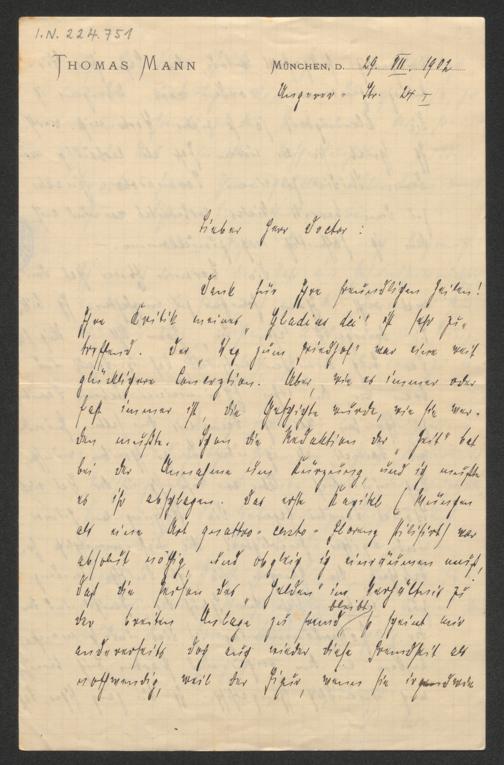 I.N. 224.751
THOMAS MANN
MÜNCHEN, D. 29. VII. 1902
Ungerer-Str. 24 I
Lieber Herr Doctor:
Dank für Ihre freundlichen Zeilen!
Ihre Kritik meines „Gladius dei“ ist sehr zu-
treffend. Der „Weg zum Friedhof“ war eine weit
glücklichere Conception. Aber, wie es immer oder
fast immer ist, die Geschichte wurde, wie sie wer-
den mußte. Schon die Redaktion der „Zeit“ bat
bei der Annahme um Kürzung, und ich mußte
es ihr abschlagen. Das erste Kapitel (München
als eine Art quattro-cento-Florenz stilisirt) war
absolut nöthig, und obgleich ich einräumen muß,
daß die Person des „Helden“ im Verhältnis zu
der breiten Anlage zu fremd bleibt, so scheint mir
andererseits doch auch wieder diese Fremdheit als
nothwendig, weil der Figur, wenn sie irgendwie